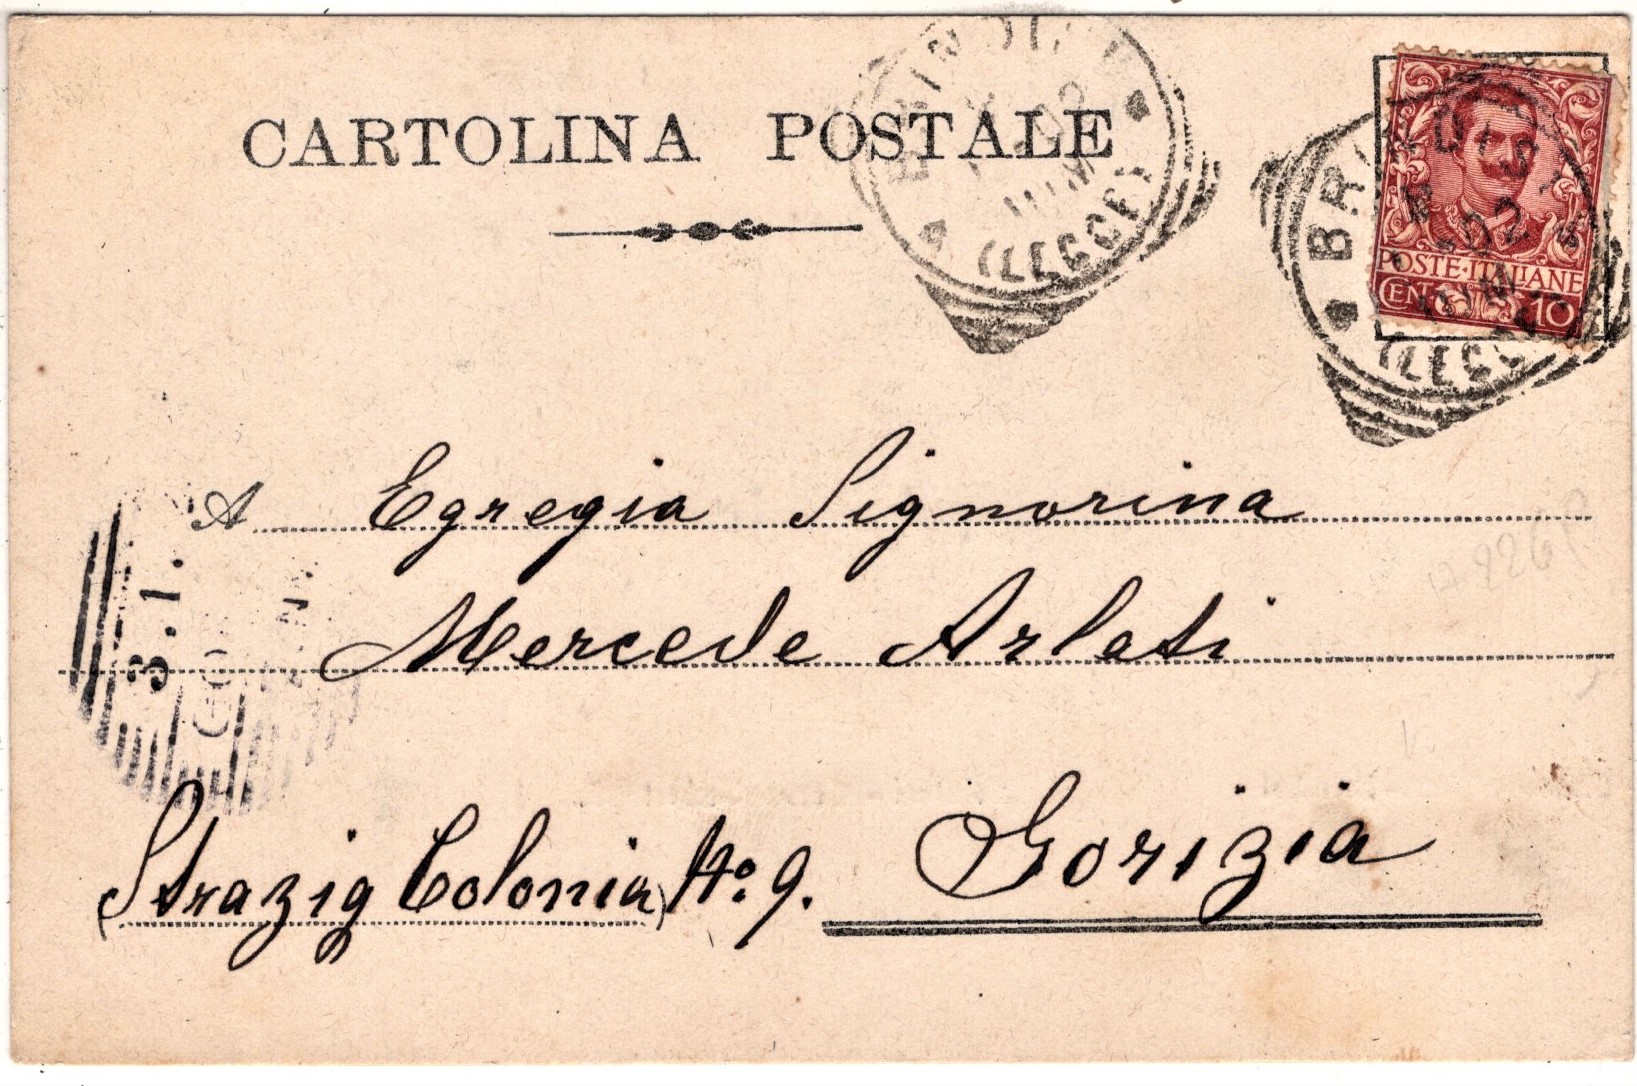 CARTOLINA POSTALE
BRINDISI
02
(LECCE)
BRINDISI
02
(LECCE)
POSTE·ITALIANE
CENT 10
A Egregia Signorina
Mercede Arlati
(Strazig Colonia) No. 9. Gorizia
3.1.